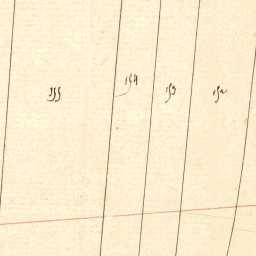 155
154
153
152